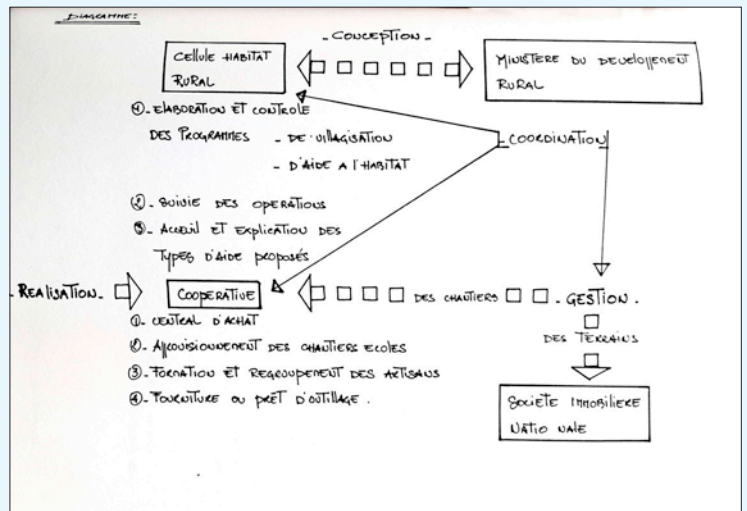 DIAGRAMME:
_ CONCEPTION _
CELLULE HABITAT
RURAL
MINISTERE DU DEVELOPPEMENT
RURAL
① _ ELABORATION ET CONTROLE
DES PROGRAMMES _ DE VILLAGISATION
_ D'AIDE A L'HABITAT
_ COORDINATION
② _ SUIVIE DES OPERATIONS
③ _ ACCEUIL ET EXPLICATION DES
TYPES D'AIDE PROPOSÉS
_ REALISATION _
COOPERATIVE
DES CHANTIERS
_ GESTION .
① _ CENTRAL D'ACHAT
② _ APPROVISIONNEMENT DES CHANTIERS ECOLES
③ _ FORMATION ET REGROUPEMENT DES ARTISANS
④ _ FOURNITURE OU PRÊT D'OUTILLAGE .
DES TERRAINS
SOCIETE IMMOBILIERE
NATIONALE